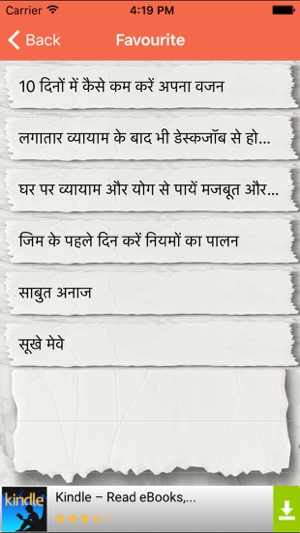 Carrier 4:19 PM
Back Favourite
10 दिनों में कैसे कम करें अपना वजन
लगातार व्यायाम के बाद भी डेस्कजॉब से हो...
घर पर व्यायाम और योग से पायें मजबूत और...
जिम के पहले दिन करें नियमों का पालन
साबुत अनाज
सूखे मेवे
kindle
Kindle – Read eBooks,...